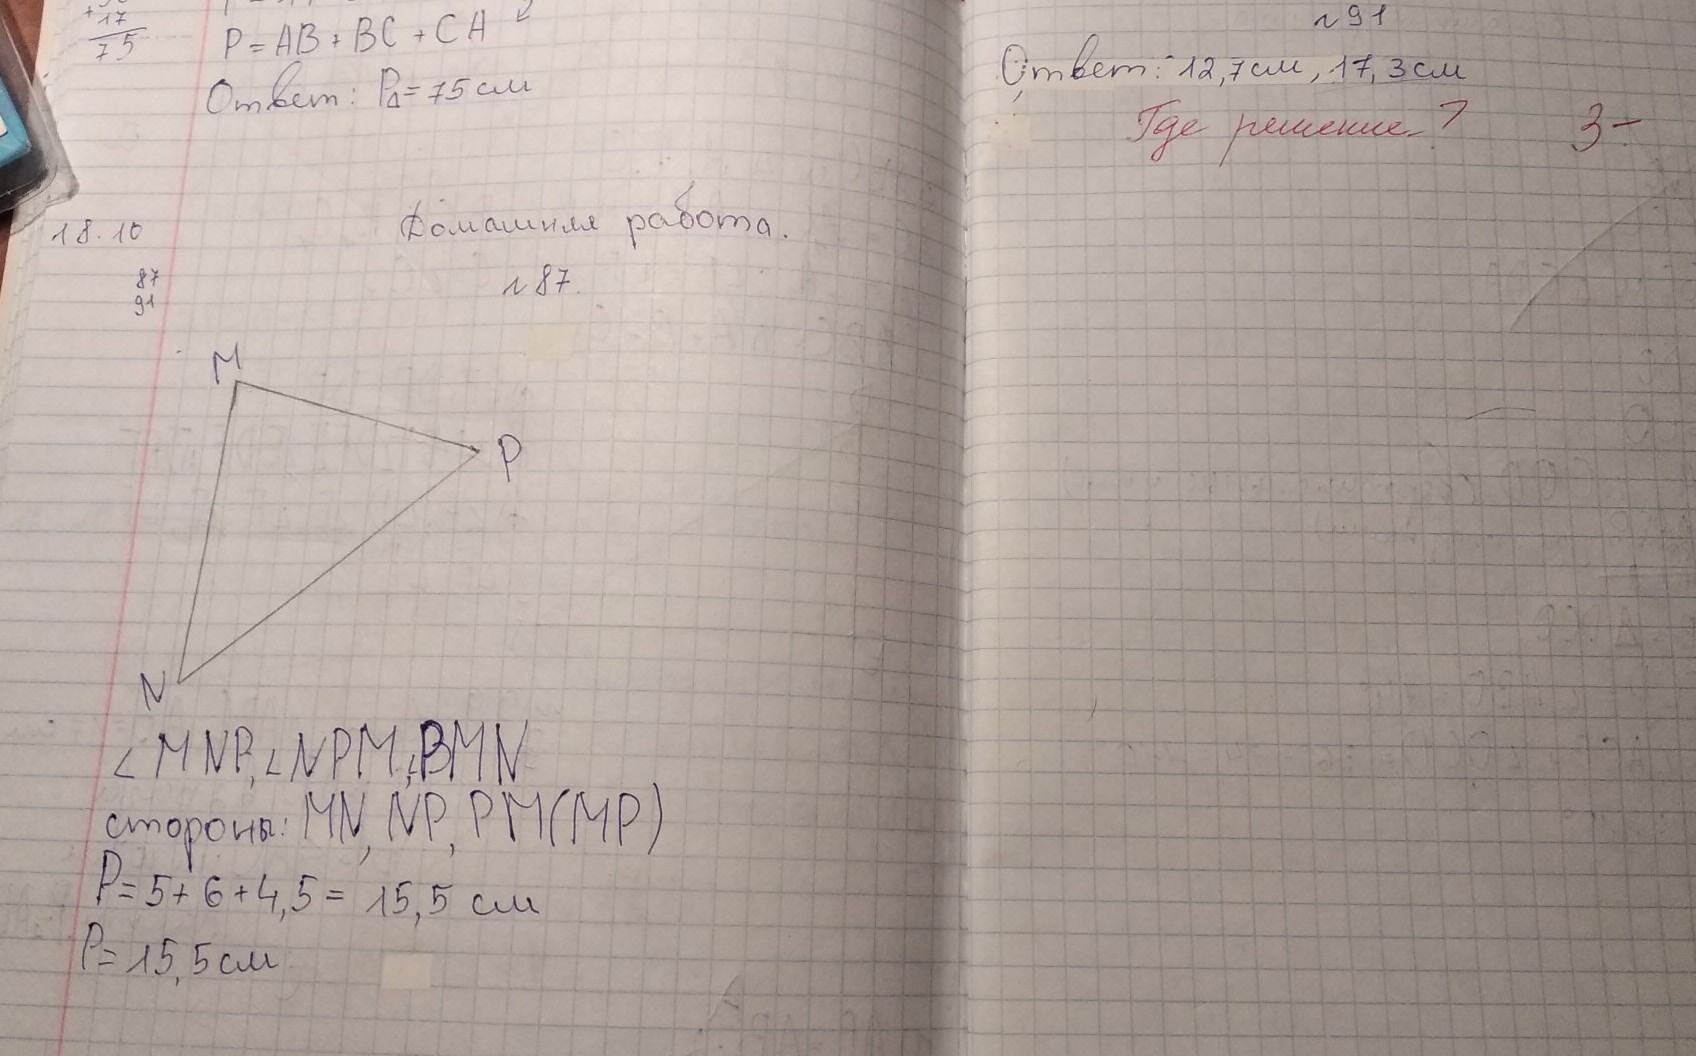 +17
75
P = AB + BC + CA
Ответ: P∆ = 75 см
18.10
Домашняя работа.
87
91
№ 87.
M
P
N
∠MNP, ∠NPM, ∠PMN
стороны: MN, NP, PM(MP)
P = 5 + 6 + 4,5 = 15,5 см
P = 15,5 см
№ 91
Ответ: 12,7 см, 17,3 см
Где решение?
3-